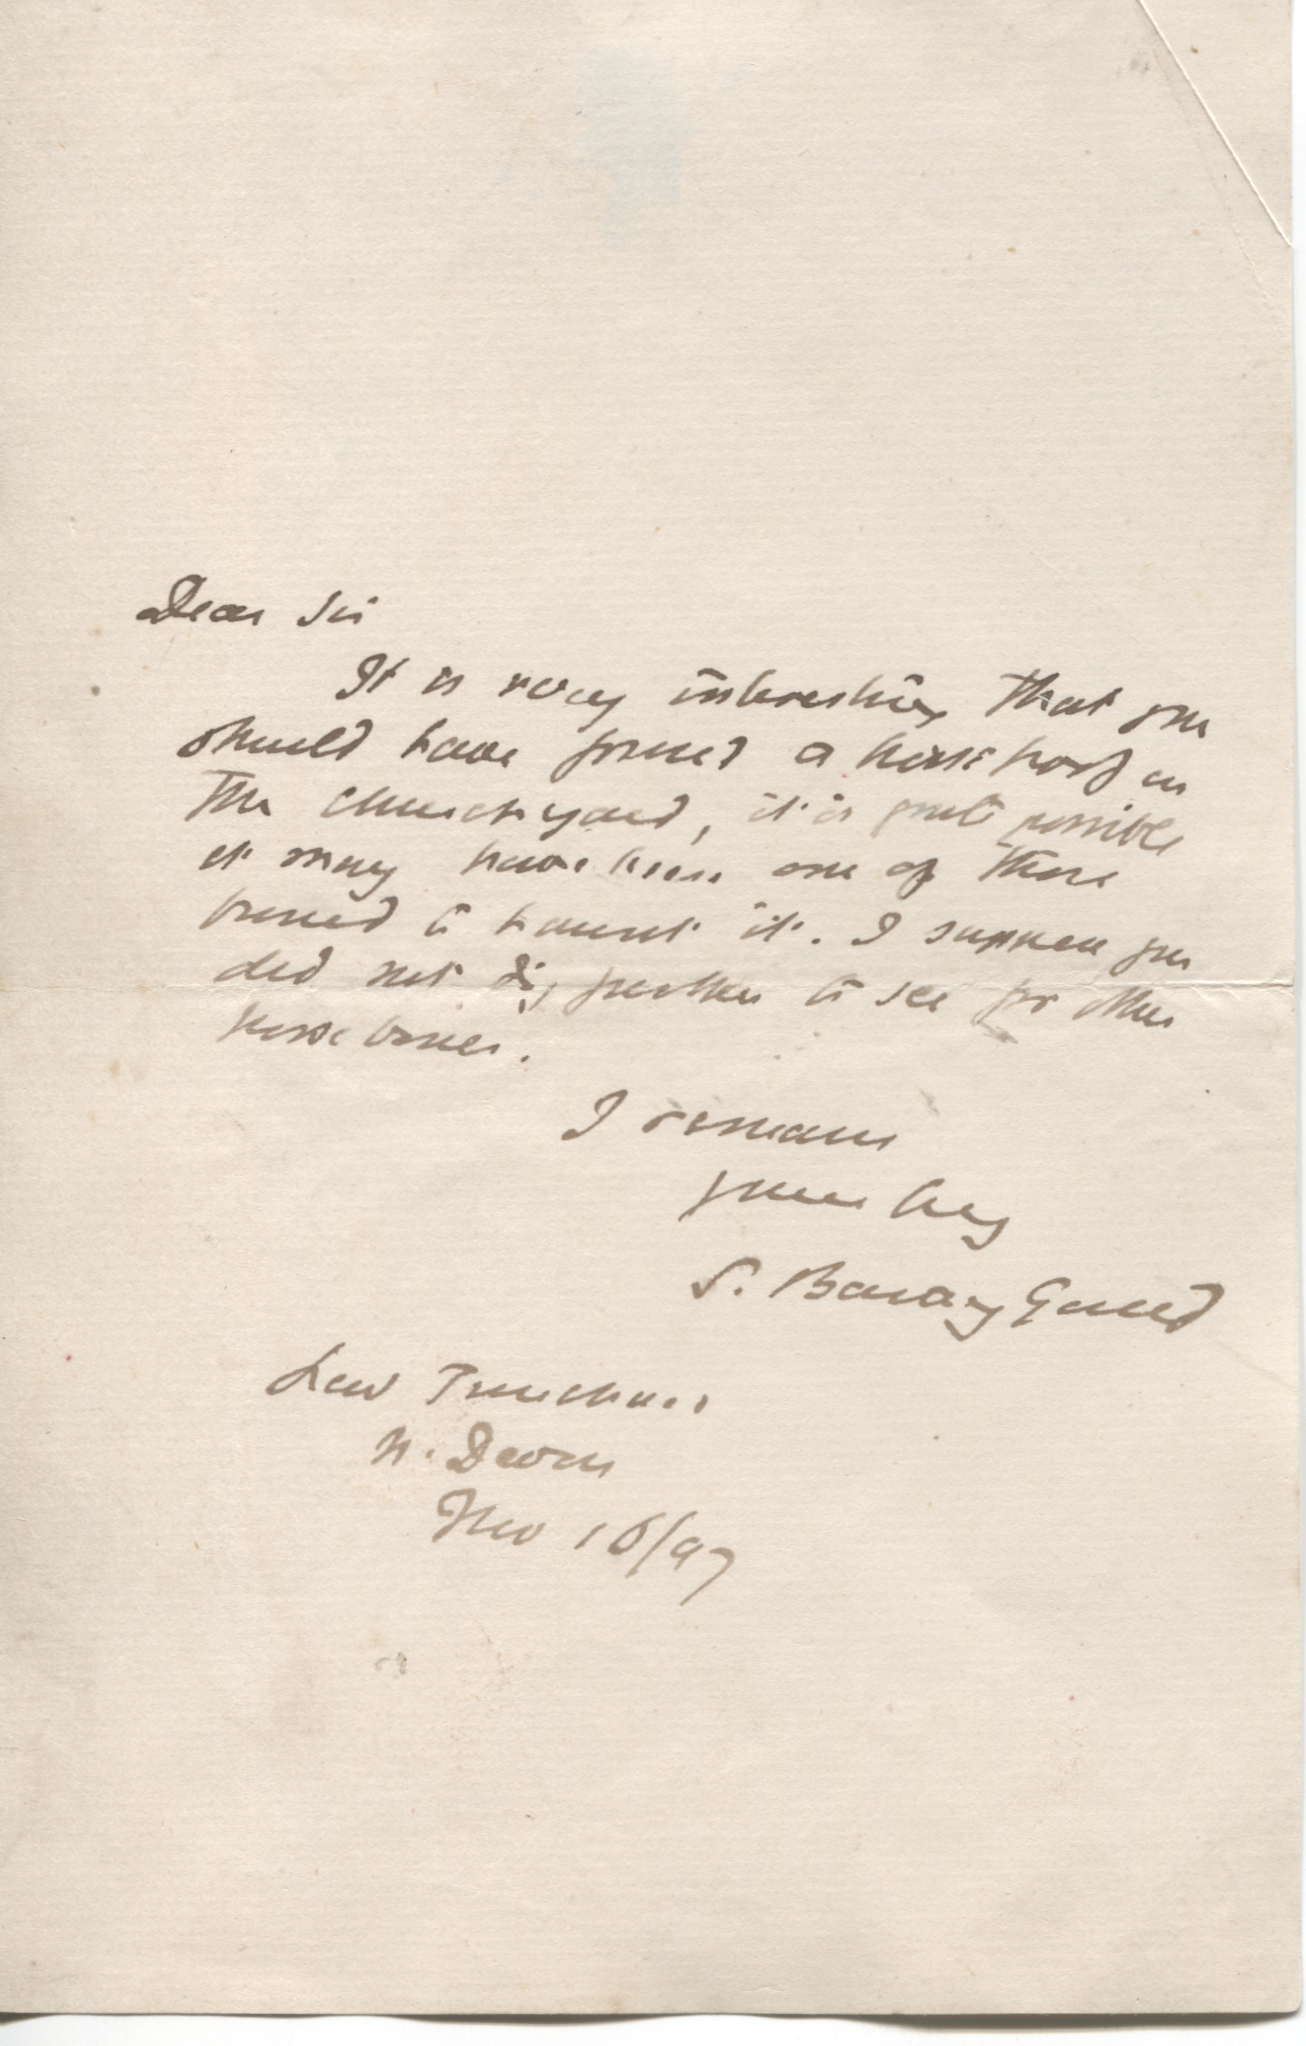 Dear Sir
It is very interesting that you
should have found a horse hoof in
the churchyard, it is quite possible
it may have been one of those
buried to haunt it. I suppose you
did not dig further to see for other
horse bones.
I remain
yours truly
S. Baring Gould
Lew Trenchard
N. Devon
Nov 16/97